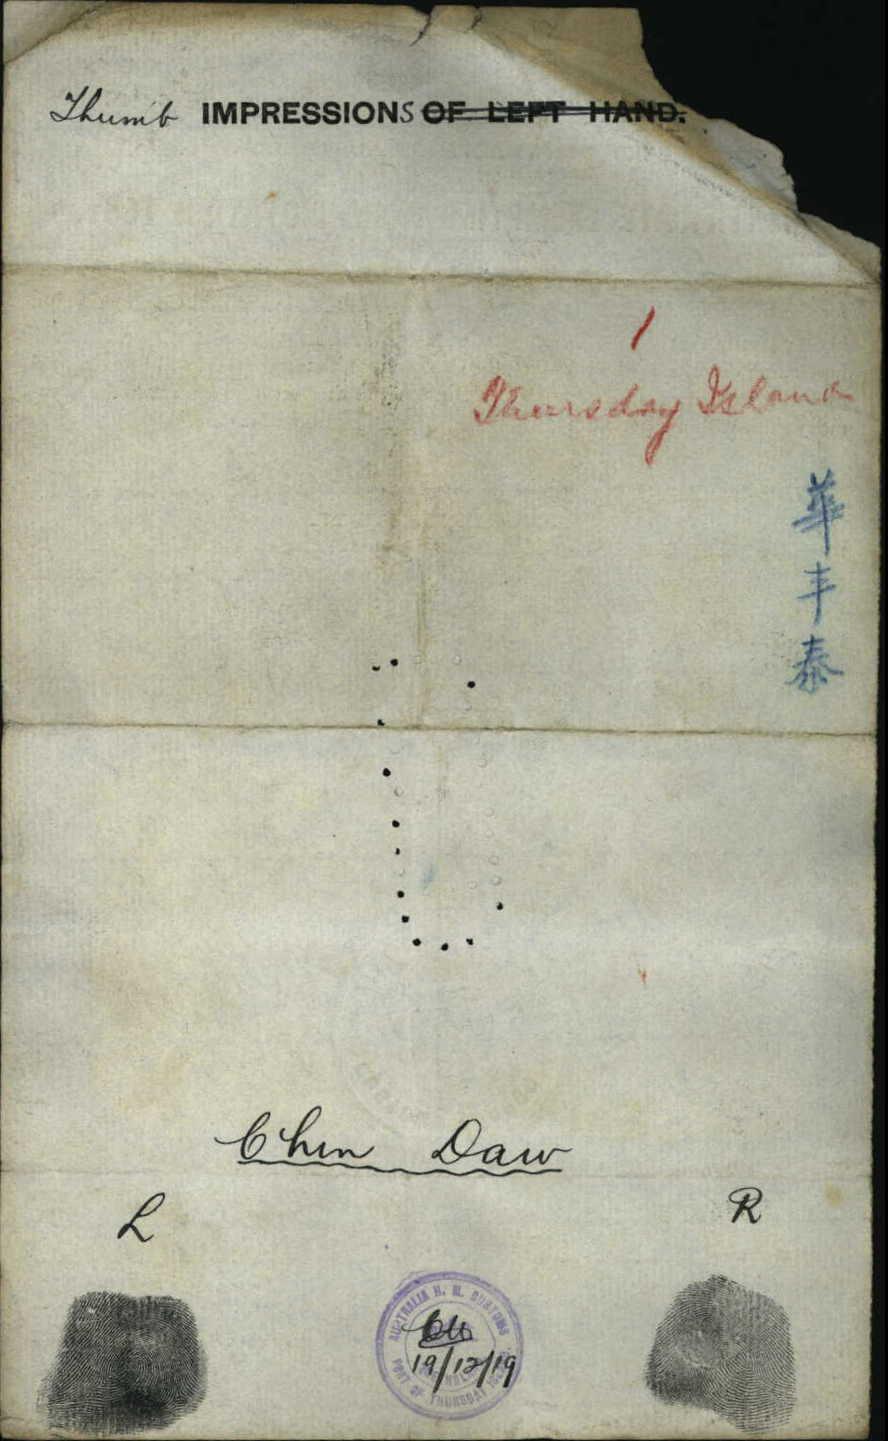 Thumb IMPRESSIONS OF LEFT HAND.
Thursday Island
華丰泰
Chin Daw
L
R
AUSTRALIA H. M. CUSTOMS
19/12/19
PORT OF THURSDAY